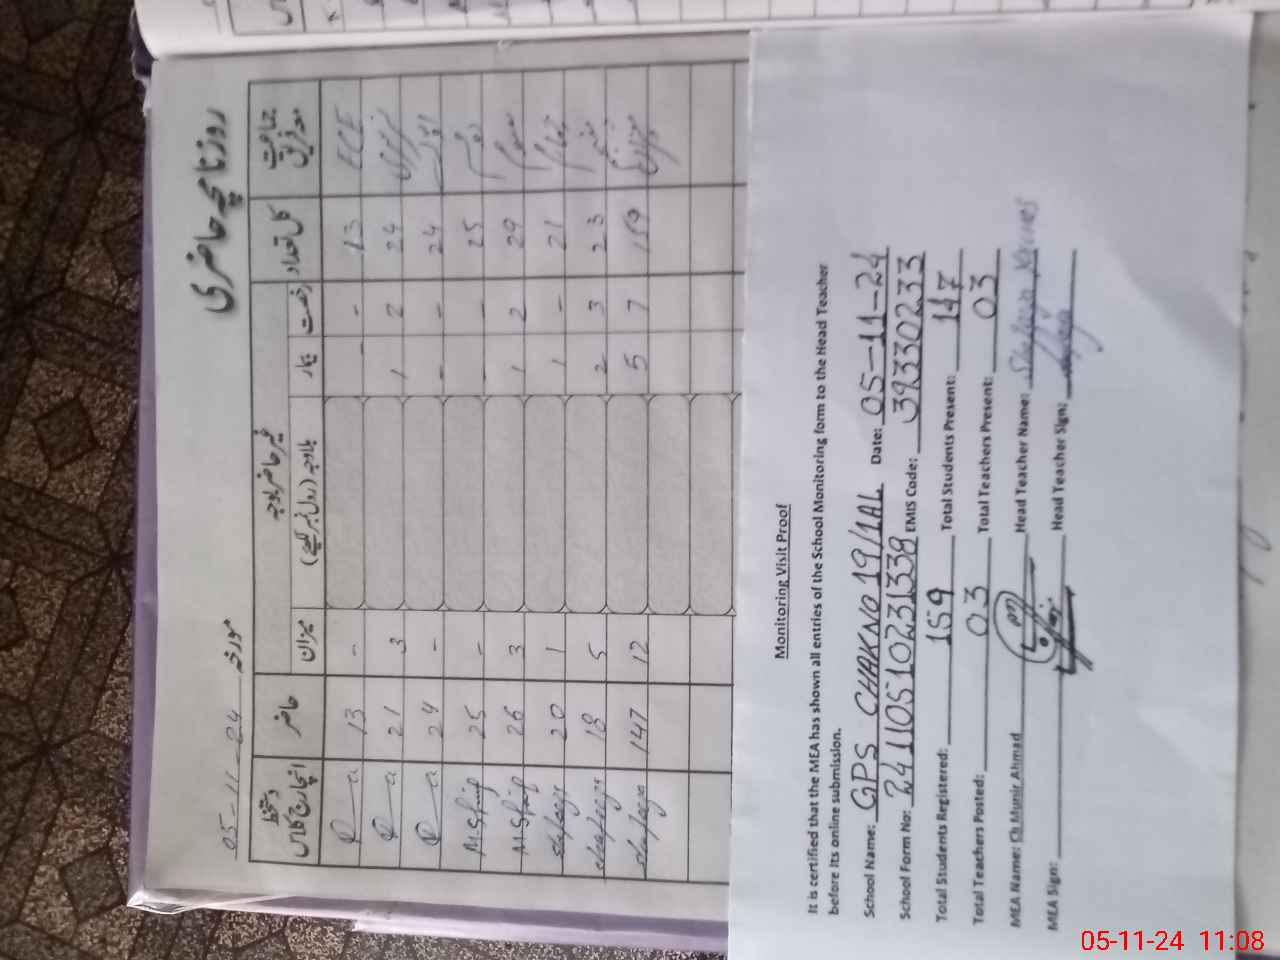 روزنامچہ حاضری
05-11-24 مورخہ
جماعت معہ فریق کل تعداد غیر حاضر بلاوجہ حاضر دستخط انچارج کلاس
رخصت بیمار بلاوجہ (رول نمبر لکھیے) میزان
ECE 13 - - - 13
24 2 1 3 21
اول 24 - - - 24
دوم 25 - - - 25 M.Shafiq
سوم 29 2 1 3 26 M.Shafiq
چہارم 21 - 1 1 20
پنجم 23 3 2 5 18
میزان 159 7 5 12 147
Monitoring Visit Proof
It is certified that the MEA has shown all entries of the School Monitoring form to the Head Teacher
before its online submission.
School Name: GPS CHAK NO 19/1AL Date: 05-11-24
School Form No: 24110510231338 EMIS Code: 39330233
Total Students Registered: 159 Total Students Present: 147
Total Teachers Posted: 03 Total Teachers Present: 03
MEA Name: Ch Munir Ahmad Head Teacher Name:
MEA Sign: Head Teacher Sign:
05-11-24 11:08